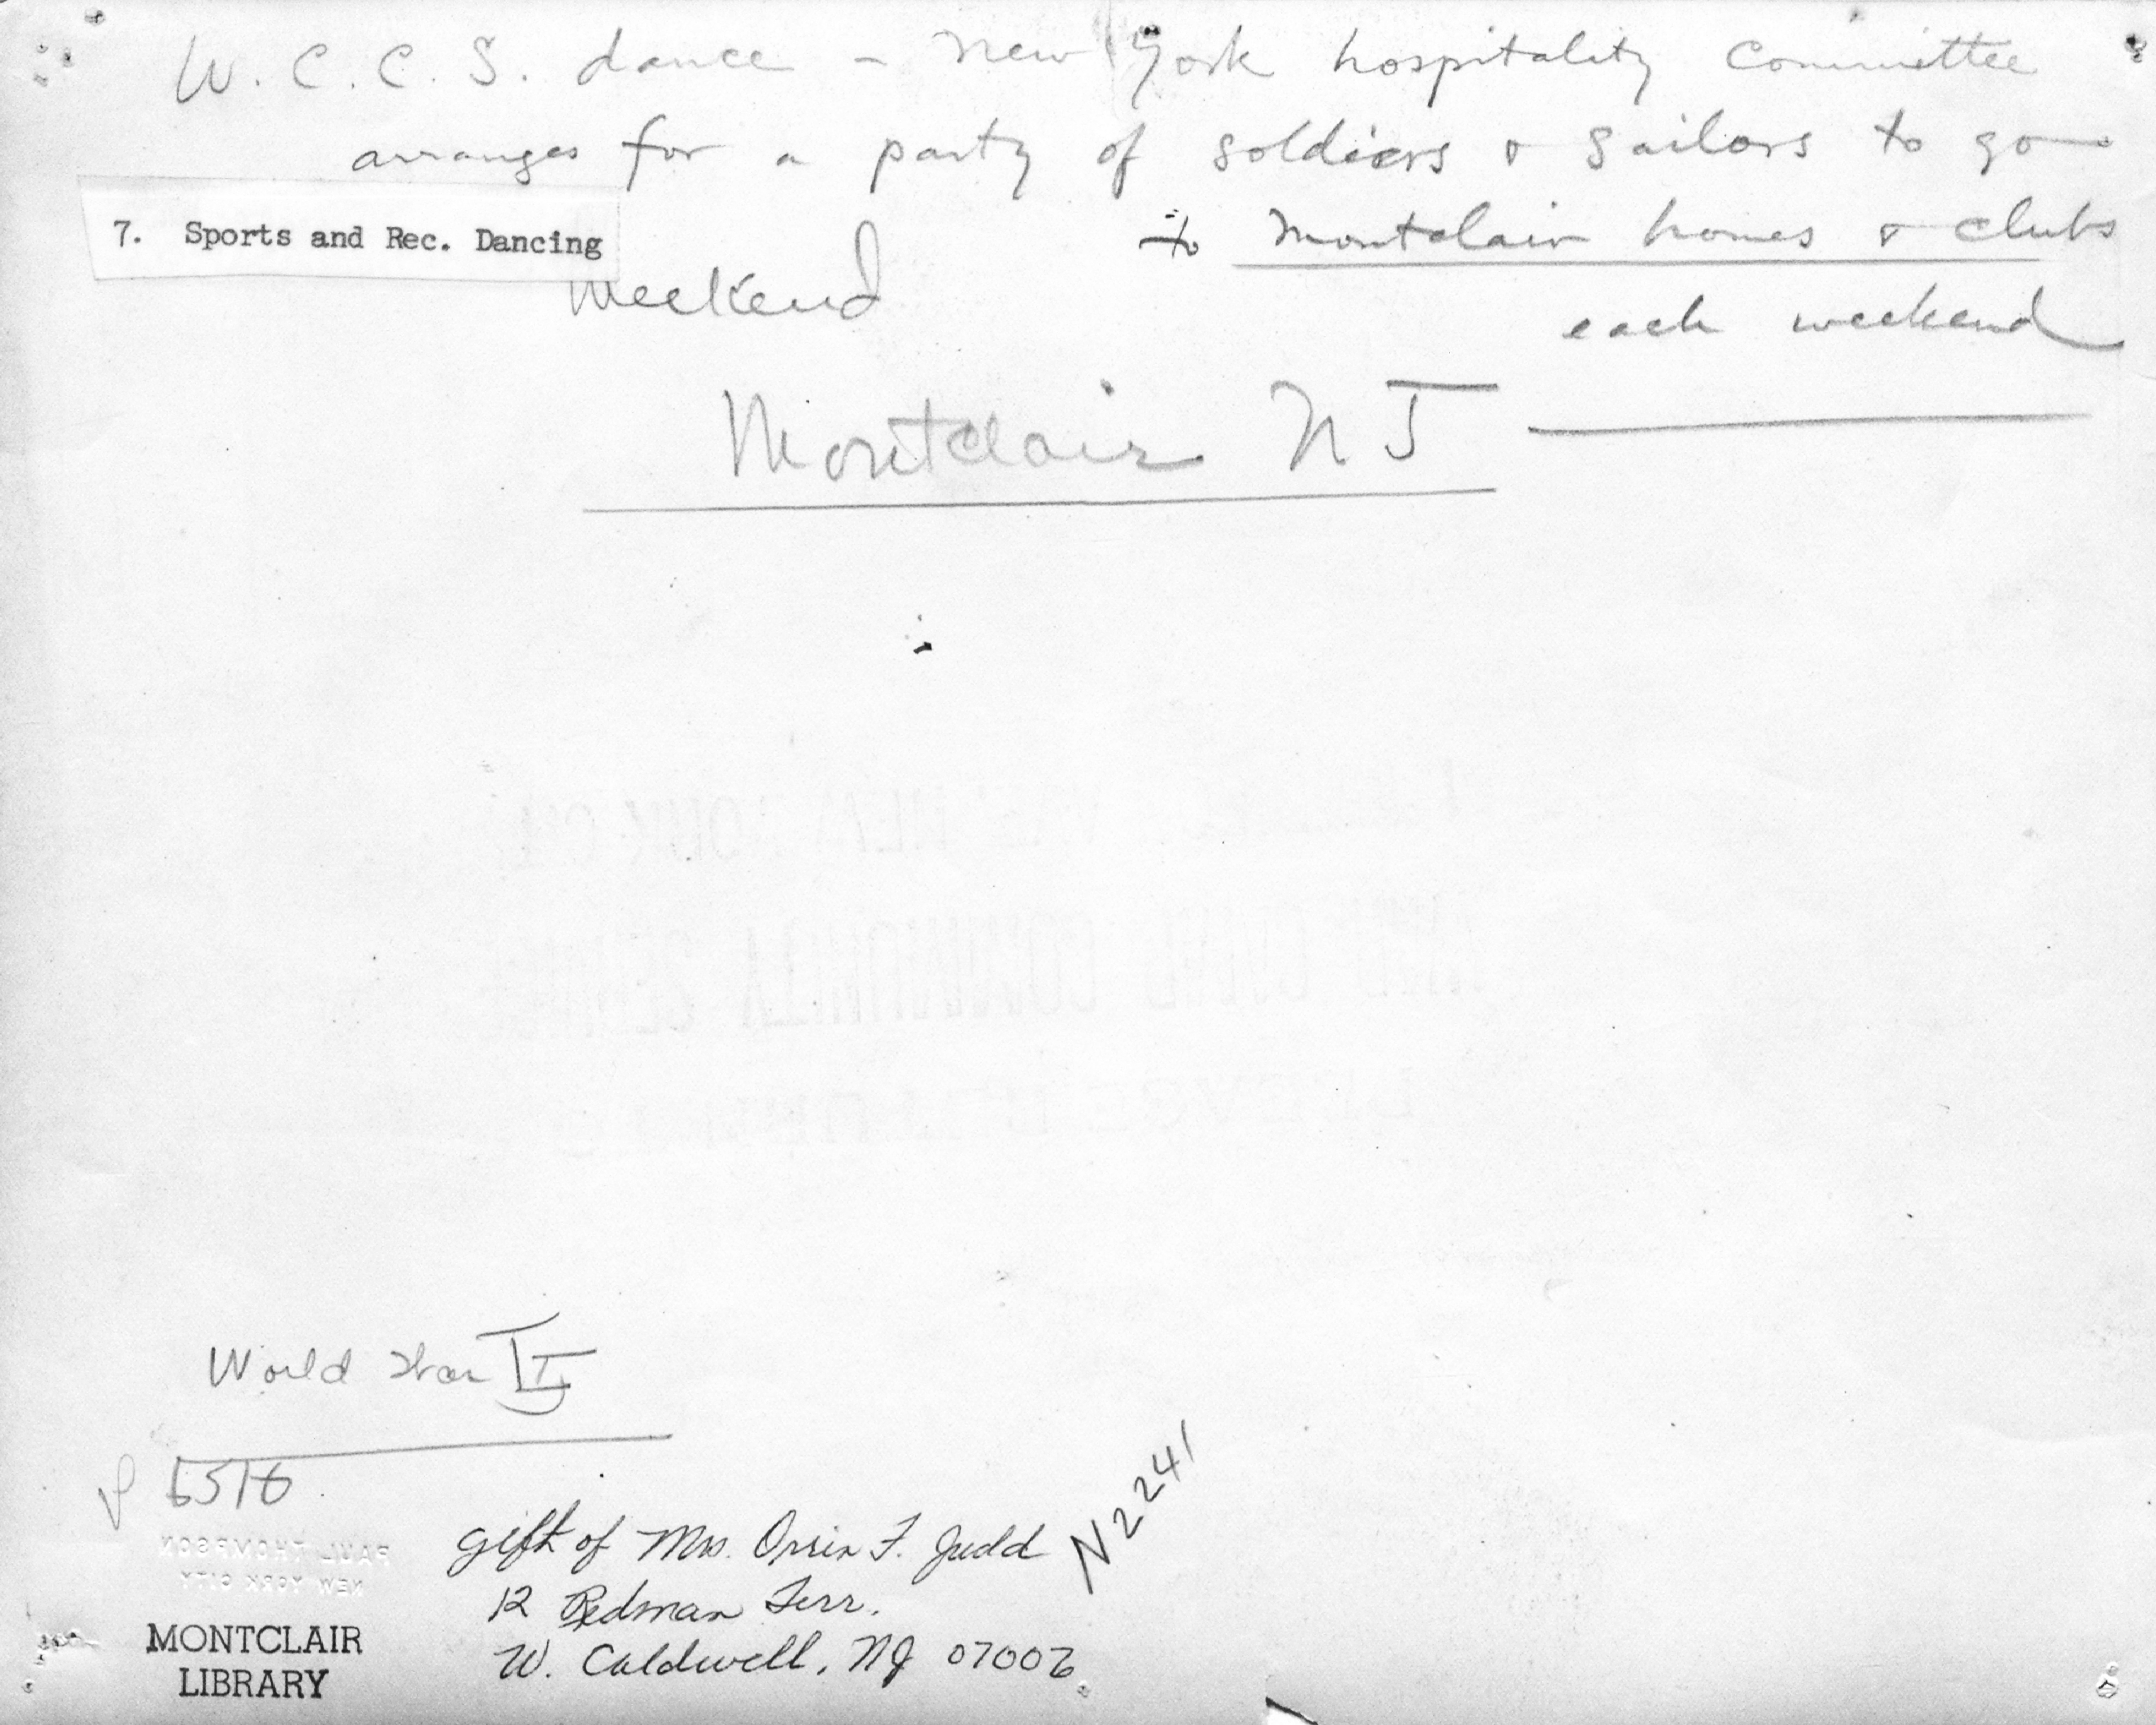 W. C. C. S. dance - New York hospitality Committee
arranges for a party of soldiers & sailors to go
to Montclair homes & clubs
7. Sports and Rec. Dancing
Weekend
each weekend
Montclair NJ
World War II
gift of Mrs. Orrin F. Judd
N2241
12 Redman Terr.
W. Caldwell, NJ 07006
PAUL THOMPSON
NEW YORK CITY
MONTCLAIR
LIBRARY